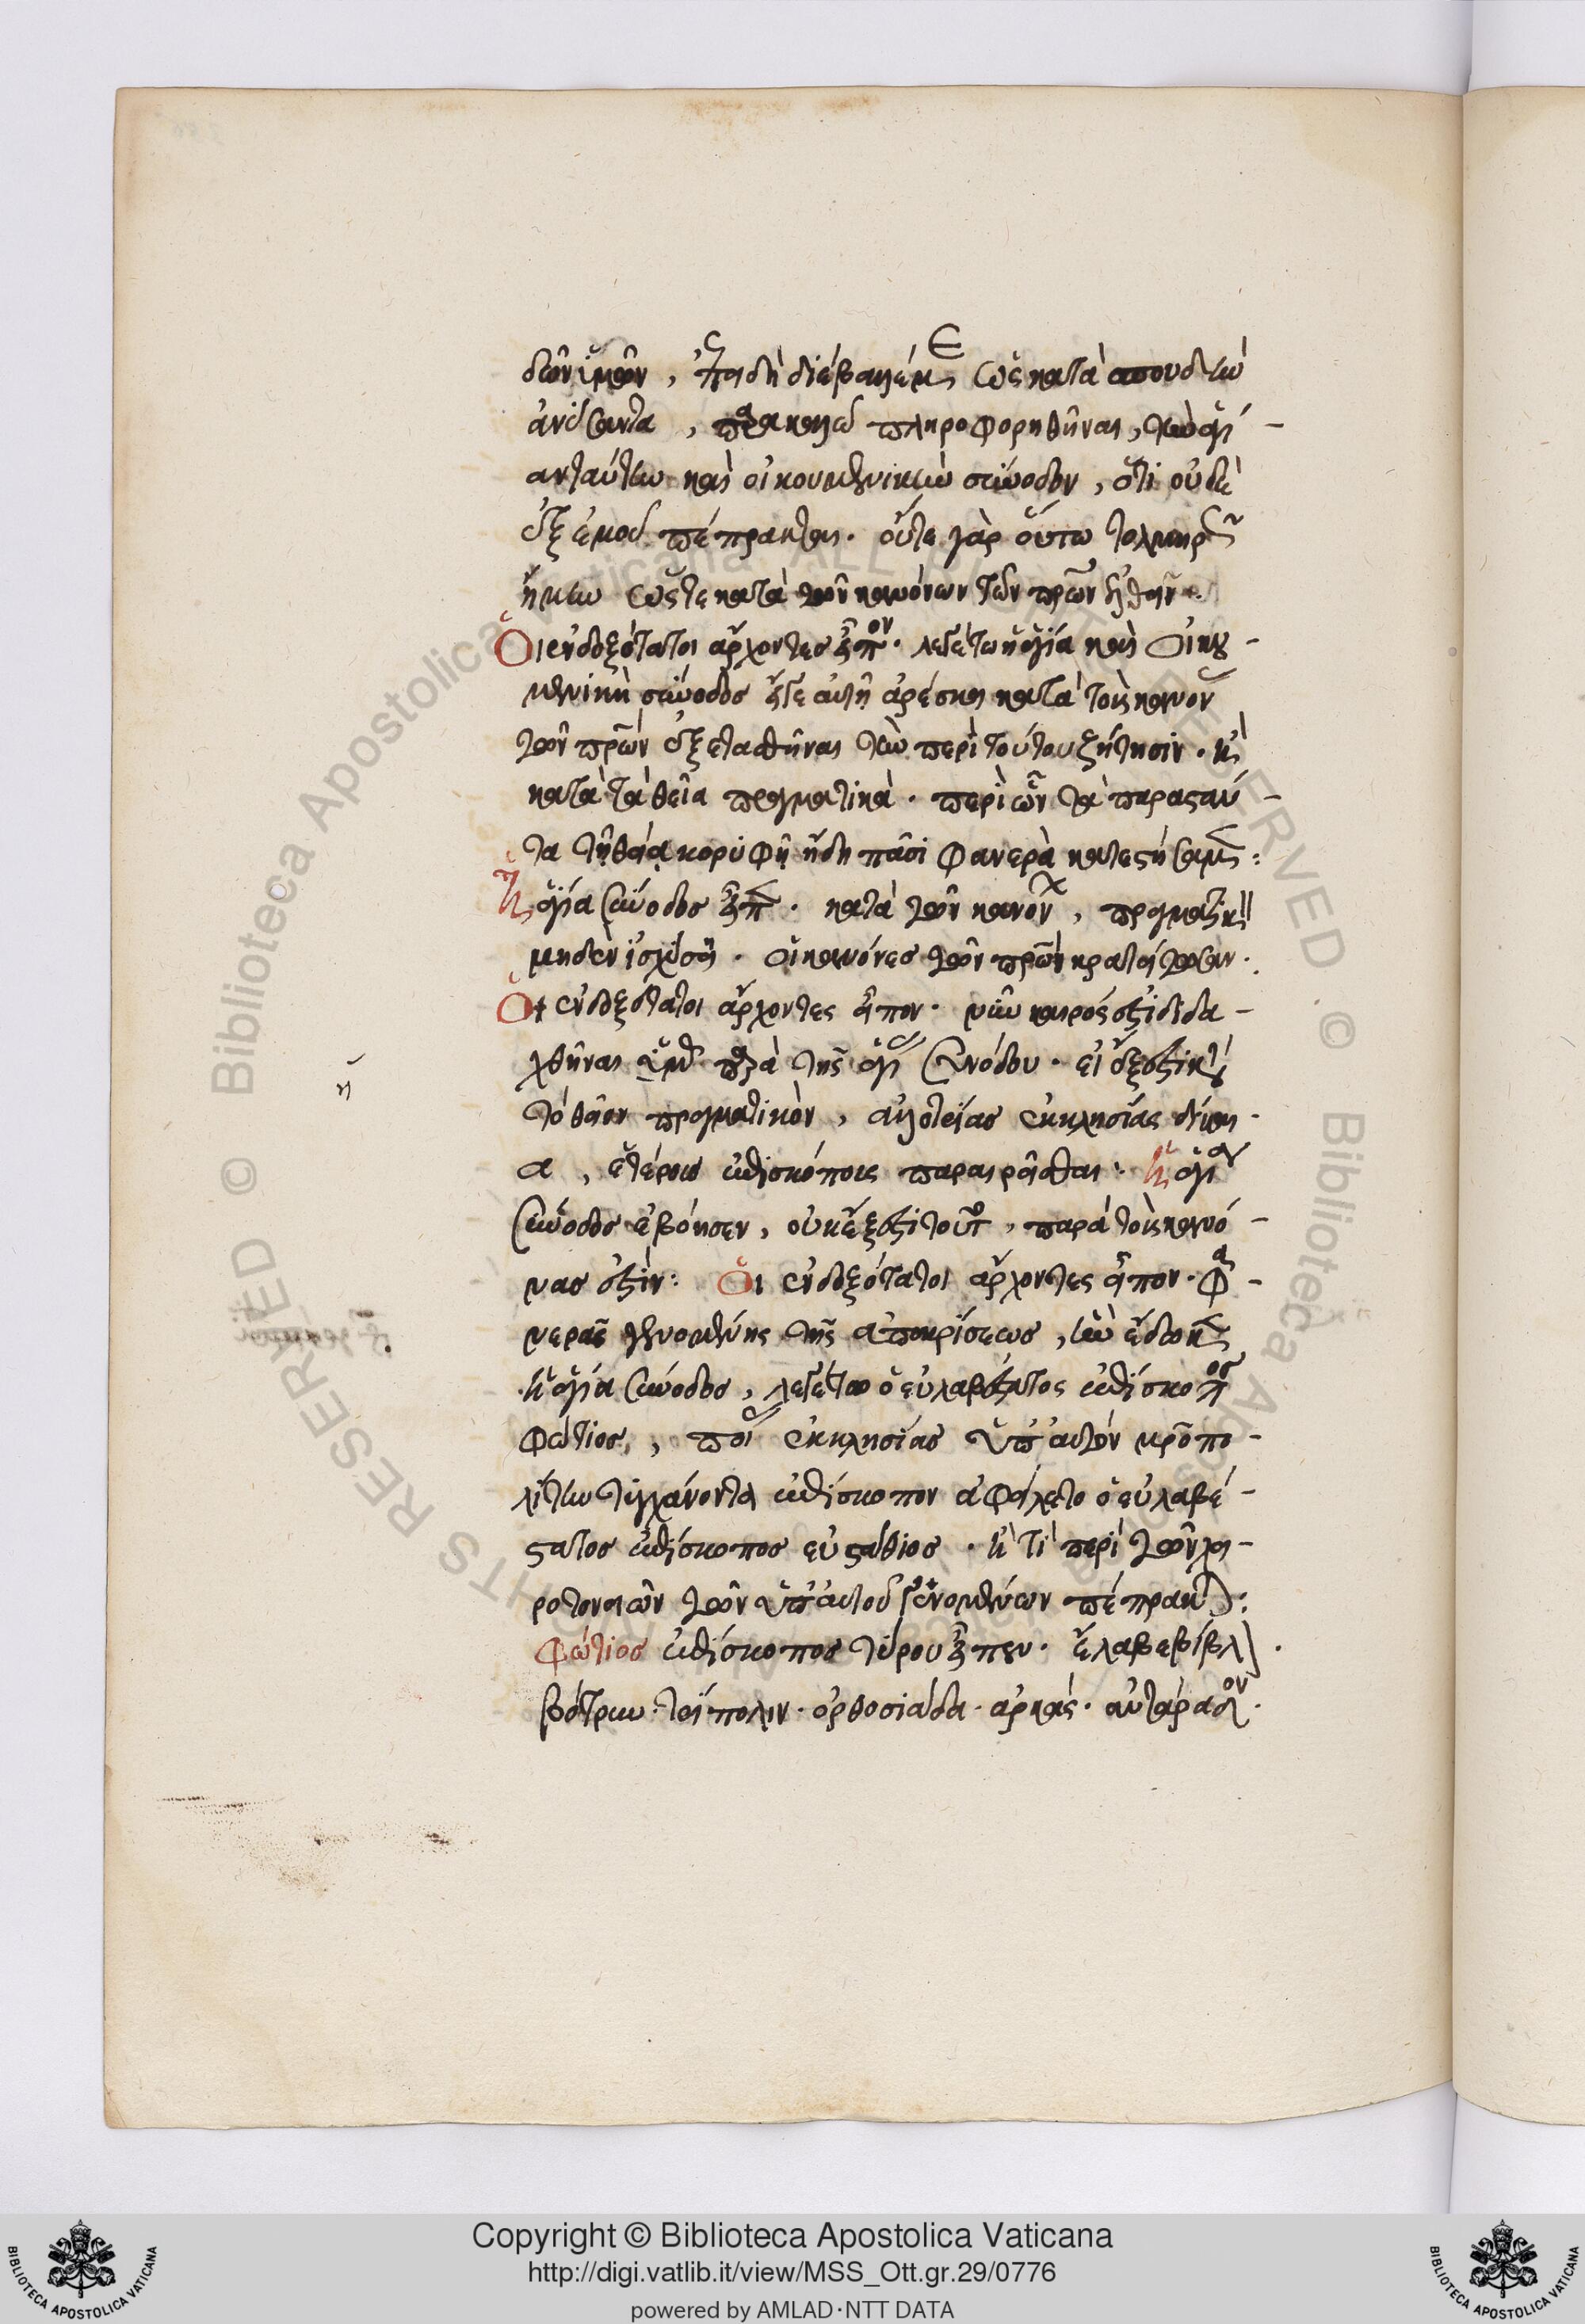 δῶν ὑμῶν, ἐπειδὴ διέβαλέ με ὡς κατὰ σπουδὴν
ἀνύσαντα, παρακαλῶ πληροφορηθῆναι, τὴν ἁγι-
ωτάτην καὶ οἰκουμενικὴν σύνοδον, ὅτι οὐδὲν
ἐξ ἐμοῦ πέπρακται. οὔτε γὰρ οὕτω τολμηρὸς
ἥκω ὥστε κατὰ τῶν κανόνων τῶν πρων ἐλθεῖν.
Οἱ ἐνδοξότατοι ἄρχοντες επον. λεγέτω ἡ ἁγία καὶ οἰκου-
μενικὴ σύνοδος τί αὐτῇ ἀρέσκει κατὰ τοὺς κανον
τῶν πρων ἐξετασθῆναι τὴν περὶ τούτου ζήτησιν. ἢ
κατὰ τὰ θεῖα πραγματικὰ. περὶ ὧν τὰ παραστάν-
τα τῇ θείᾳ κορυφῇ ἤδη πᾶσι φανερὰ κατεστήσαμεν:
Ἡ ἁγία σύνοδος επ. κατὰ τῶν κανον, πραγματικ
μηδὲν ἰσχύσει. οἱ κανόνες τῶν πρων κρατείτωσαν.
Οἱ ἐνδοξότατοι ἄρχοντες εἶπον. νῦν καιρός ἐστι διδα-
χθῆναι ἡμ παρὰ τῆς ἁγι συνόδου. εἰ ἔξεστι κ
τὸ θεῖον πραγματικὸν, ἀλλοτρίας ἐκκλησίας δίκαι-
α, ἑτέροις ἐπισκόποις παραιρεῖσθαι: Ἡ ἁγία
σύνοδος ἐβόησεν, οὐκ ἔξεστι τοῦτο, παρὰ τοὺς κανό-
νας ἐστίν: Οἱ ἐνδοξότατοι ἄρχοντες εἶπον. φα-
νερᾶς γενομένης τῆς ἀποκρίσεως, ἣν ἔδωκεν
ἡ ἁγία σύνοδος, λεγέτω ὁ εὐλαβέστατος ἐπίσκοπος
φώτιος, ποί ἐκκλησίας ὑπ' αὐτὸν μρόπο-
λίτην τυγχάνοντα ἐπίσκοπον ἀφείλετο ὁ εὐλαβέ-
στατος ἐπίσκοπος εὐστάθιος. ἢ τὶ περὶ τῶν χει-
ροτονιῶν τῶν ὑπ' αὐτοῦ γενομένων πέπρακται:
Φώτιος ἐπίσκοπος τύρου επεν. ἔλαβε βίβλ.
βότρυν. τρίπολιν. ὀρθοσιάδα. ἀρκάς. ἀντάραδον.
ἢ